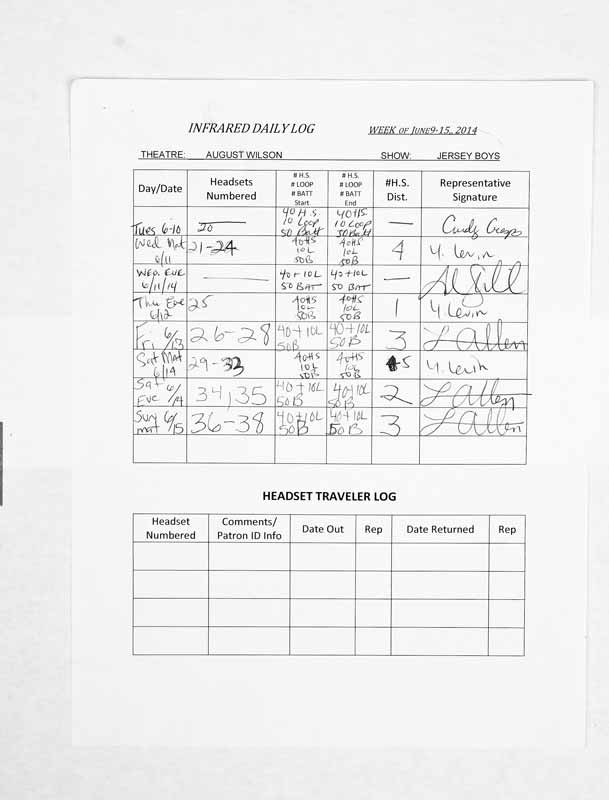 INFRARED DAILY LOG WEEK OF JUNE9-15, 2014
THEATRE: AUGUST WILSON SHOW: JERSEY BOYS
Day/Date
Headsets
Numbered
# H.S.
# LOOP
# BATT
Start
# H.S.
# LOOP
# BATT
End
#H.S.
Dist.
Representative
Signature
Tues 6-10
40 H.S.
10 Loop
50 Batt
40 HS.
10 Loop
50 Batt
—
Cindy
Wed Mat
6/11
21-24
40HS
10L
50B
40HS
10L
50B
4
Y. Levin
WED. EVE
6/11/14
40+10L
50 BAT
40+10L
50 BAT
—
Thu Eve
6/12
25
40HS
10L
50B
40HS
10L
50B
1
Y. Levin
Fri 6/13
26-28
40+10L
50B
40+10L
50B
3
L Allen
Sat Mat
6/14
29-33
40HS
10L
50B
40HS
10L
50B
5
Y. Levin
Sat 6/14
Eve
34,35
40+10L
50B
40+10L
50B
2
L Allen
Sun 6/15
mat
36-38
40+10L
50B
40+10L
50B
3
L Allen
HEADSET TRAVELER LOG
Headset
Numbered
Comments/
Patron ID Info
Date Out
Rep
Date Returned
Rep